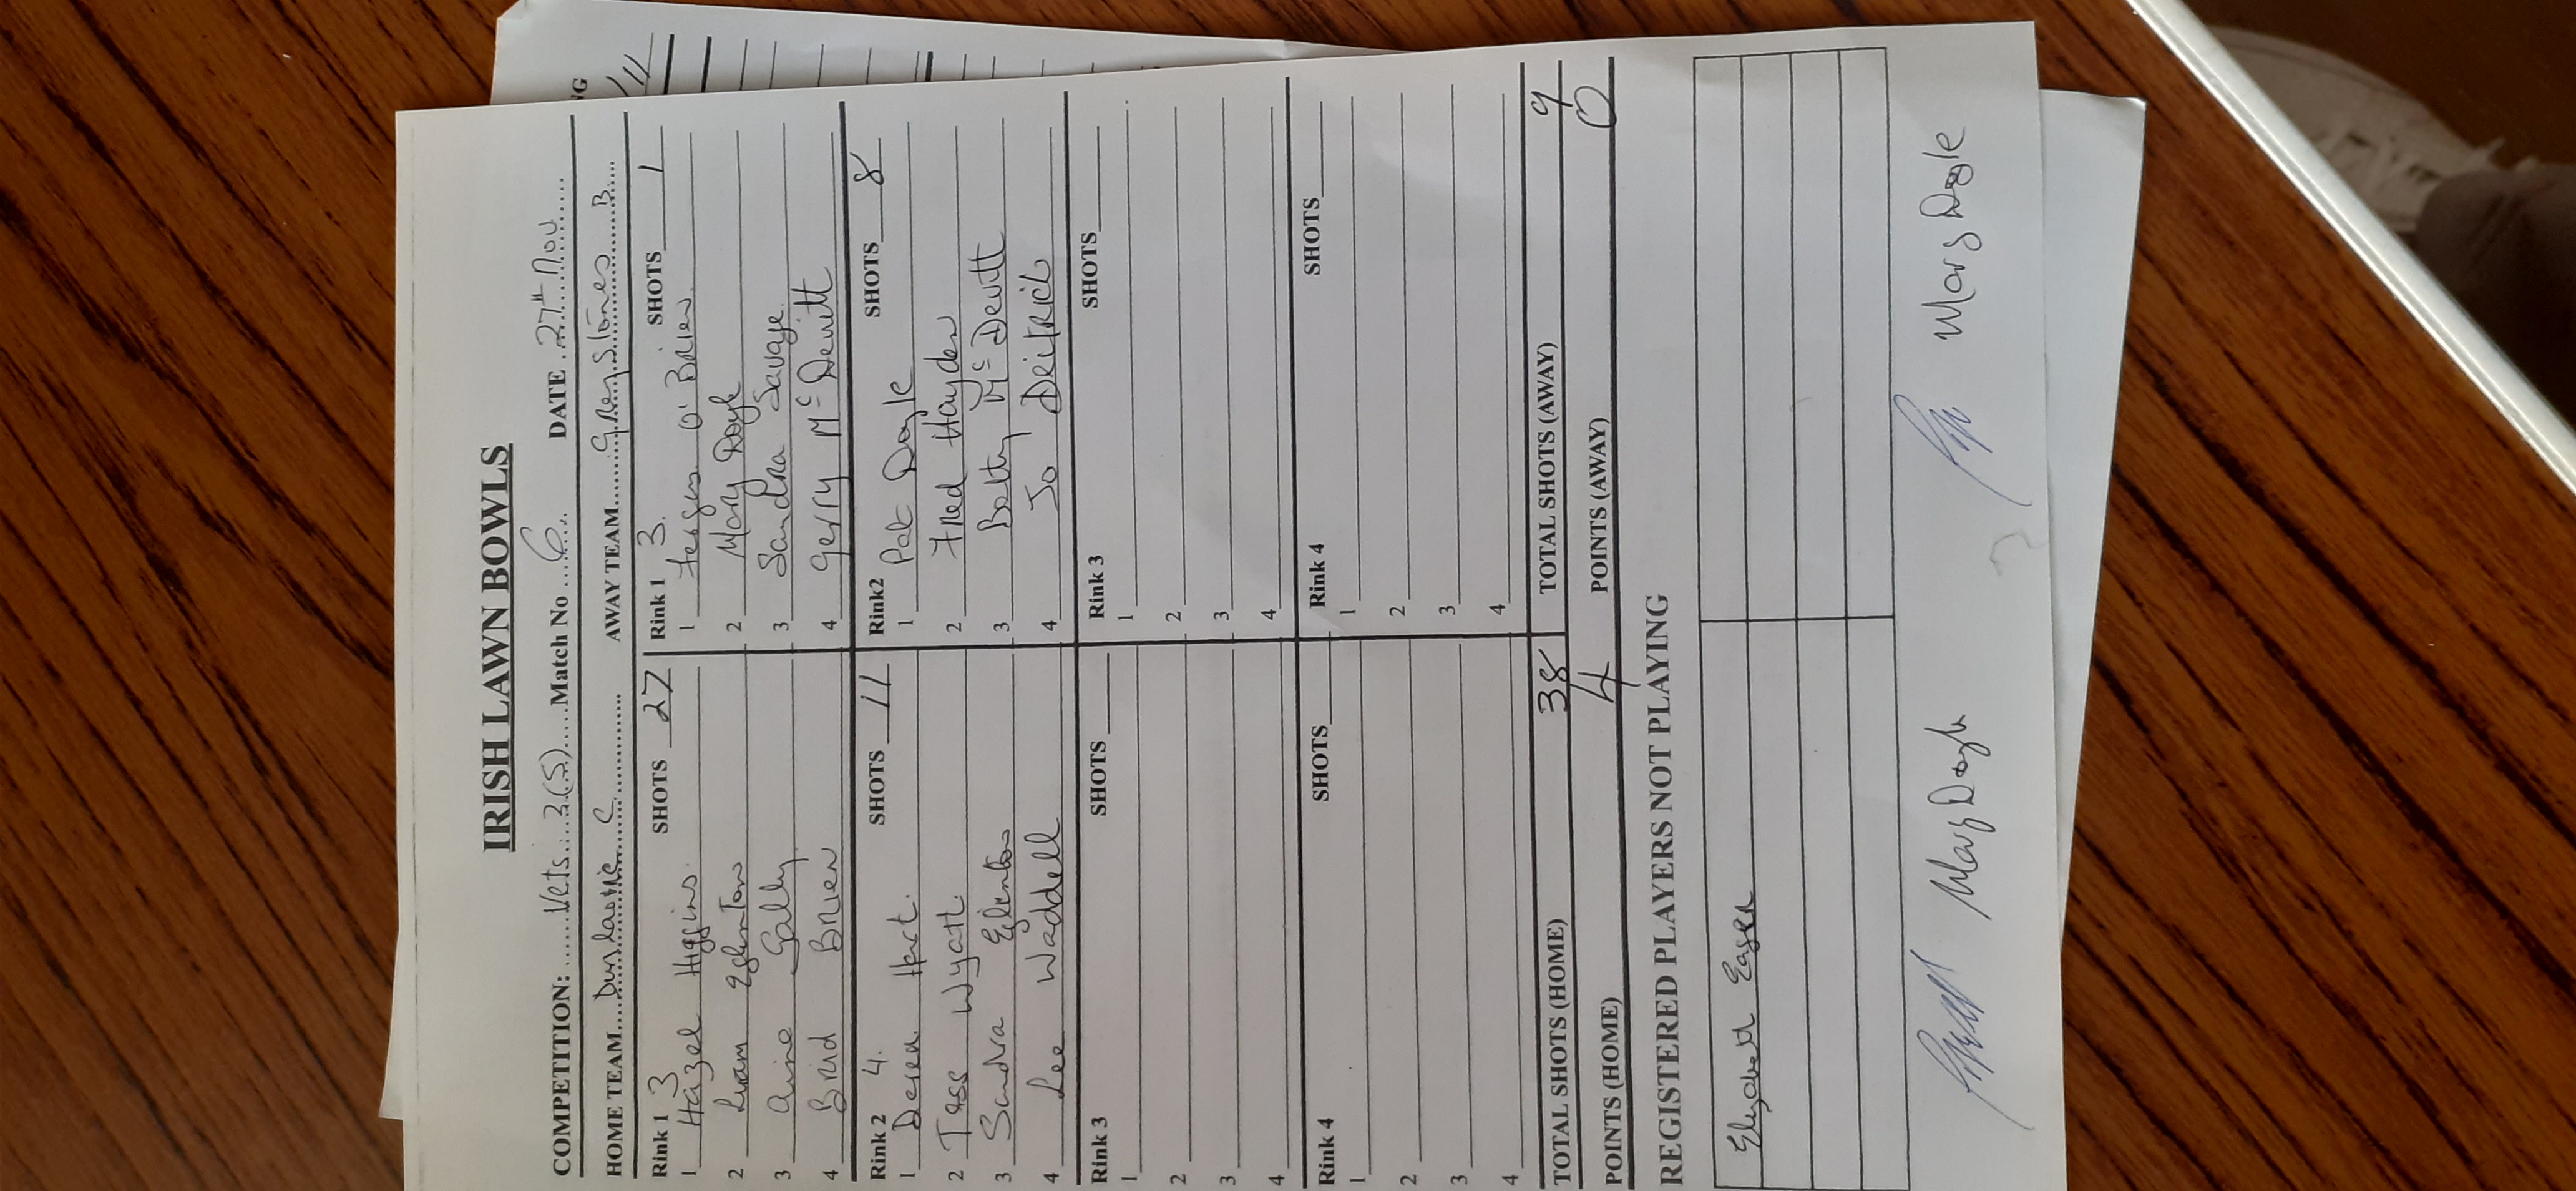 IRISH LAWN BOWLS
COMPETITION: Vets 3(S) Match No 6 DATE 27th Nov
HOME TEAM Dunlaoire C AWAY TEAM Greystones B
Rink 1 3 SHOTS 27 Rink 1 3. SHOTS 1
1 Hazel Higgins 1 Fergus O'Brien
2 Liam Eglinton 2 Mary Doyle
3 Aine Gally 3 Sandra Savage
4 Brind Brien 4 Gerry McDevitt
Rink 2 4. SHOTS 11 Rink2 SHOTS 8
1 Derek Hart. 1 Pat Doyle
2 Tess Wyatt 2 Fred Hayden
3 Sandra Eglinton 3 Betty McDevitt
4 Lee Waddell 4 Jo Deitrich
Rink 3 SHOTS Rink 3 SHOTS
1 1
2 2
3 3
4 4
Rink 4 SHOTS Rink 4 SHOTS
1 1
2 2
3 3
4 4
TOTAL SHOTS (HOME) 38 TOTAL SHOTS (AWAY) 9
POINTS (HOME) 4 POINTS (AWAY) 0
REGISTERED PLAYERS NOT PLAYING
Elizabeth Eager
Mary Doyle Mary Doyle